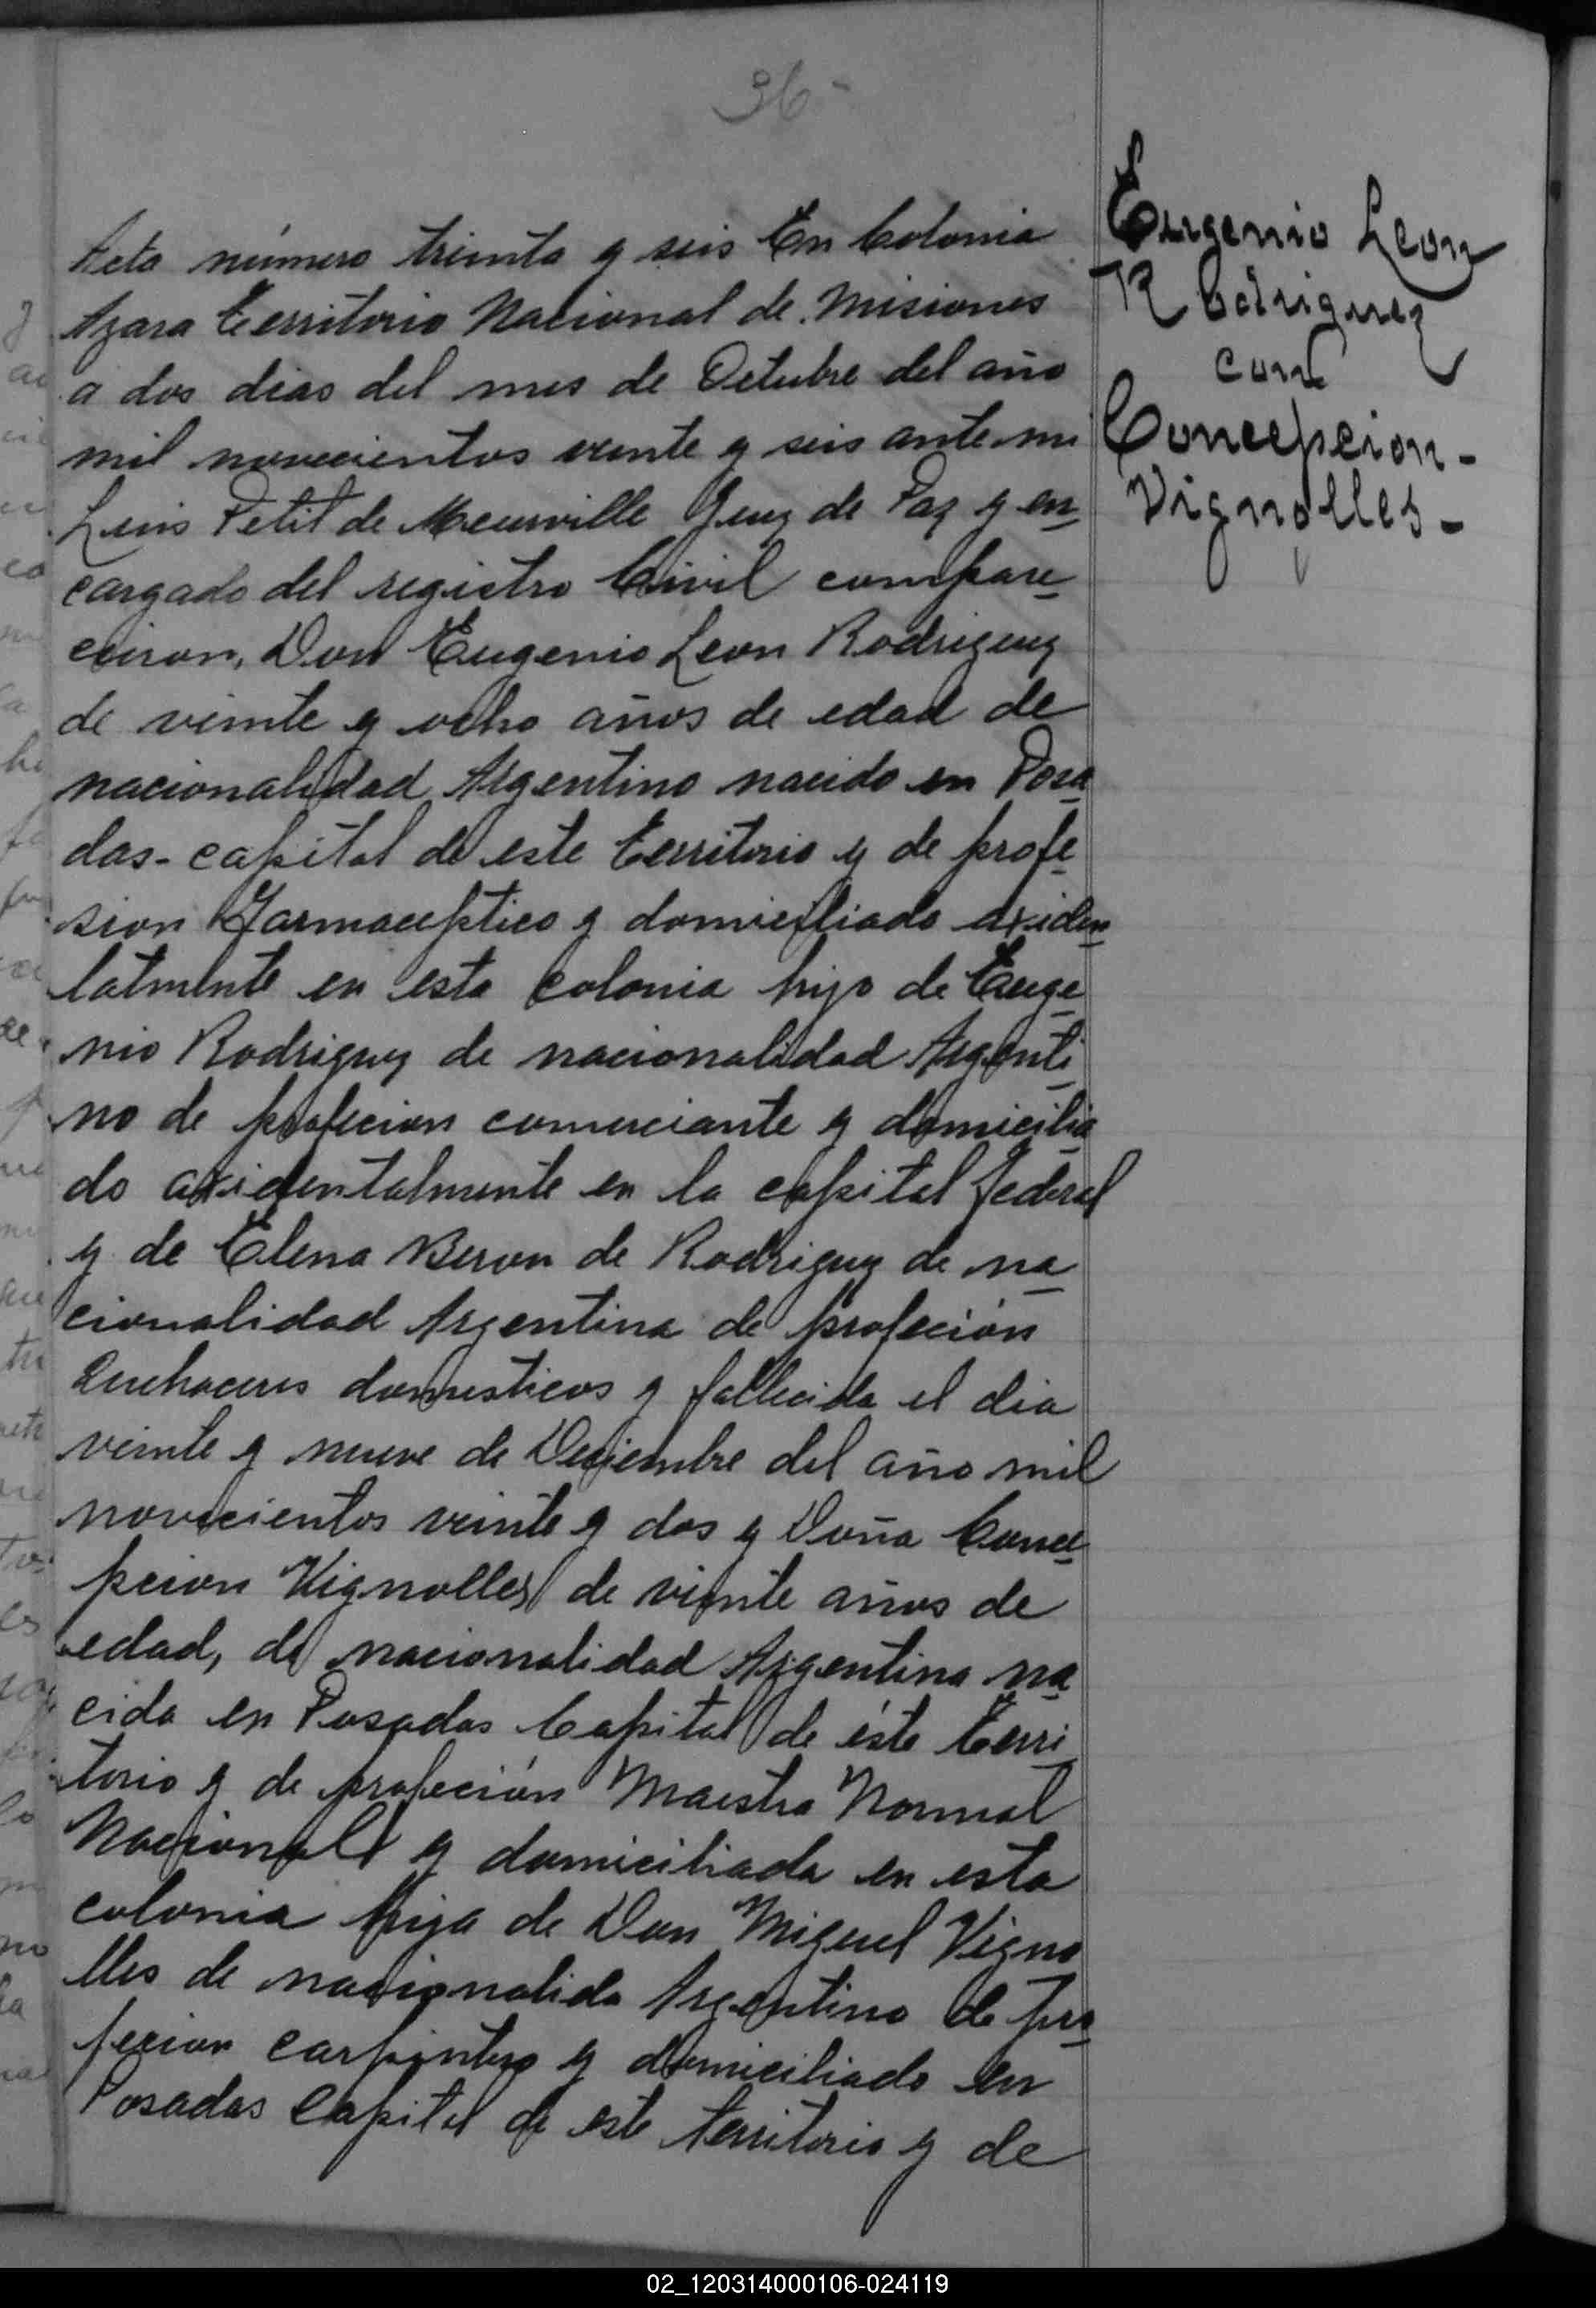 36-
Acta número treinta y seis En Colonia
Azara Territorio Nacional de Misiones
a dos dias del mes de Octubre del año
mil novecientos veinte y seis ante mi
Luis Petit de Meurville Juez de Paz y en
cargado del registro Civil compare
cieron, Don Eugenio Leon Rodriguez
de veinte y ocho años de edad de
nacionalidad Argentino nacido en Posa
das-capital de este Territorio y de profe
sion Farmaceptico y domiciliado axiden
talmente en esta colonia hijo de Euge
nio Rodriguez de nacionalidad Argenti
no de profecion comerciante y domicilia
do axidentalmente en la capital federal
y de Elena Beron de Rodriguez de na
cionalidad Argentina de profeción
Quehaceres domesticos y fallecida el dia
veinte y nueve de Deciembre del año mil
novecientos veinte y dos y Doña Conce
pcion Vignolles de veinte años de
edad, de nacionalidad Argentina na
cida en Posadas Capital de éste Terri
torio y de profeción Maestra Normal
Nacional y domiciliada en esta
colonia hija de Don Miguel Vigno
lles de nacionalida Argentino de pro
fecion carpintero y domiciliado en
Posadas Capital de este territorio y de
Eugenio Leon
Rodriguez
con
Concepcion-
Vignolles-
02_120314000106-024119